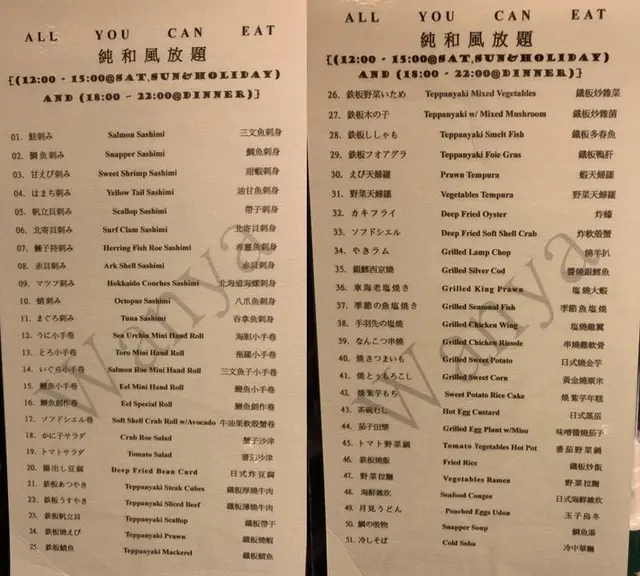 ALL YOU CAN EAT
純和風放題
{(12:00 - 15:00@SAT,SUN&HOLIDAY)
AND (18:00 ~ 22:00@DINNER)}
01. 鮭刺み Salmon Sashimi 三文魚刺身
02. 鯛魚刺み Snapper Sashimi 鯛魚刺身
03. 甘えび刺み Sweet Shrimp Sashimi 甜蝦刺身
04. はまち刺み Yellow Tail Sashimi 油甘魚刺身
05. 帆立貝刺み Scallop Sashimi 帶子刺身
06. 北寄貝刺み Surf Clam Sashimi 北寄貝刺身
07. 鰊子持刺み Herring Fish Roe Sashimi 希靈魚刺身
08. 赤貝刺み Ark Shell Sashimi 赤貝刺身
09. マツブ刺み Hokkaido Conches Sashimi 北海道海螺刺身
10. 蛸刺み Octopus Sashimi 八爪魚刺身
11. まぐろ刺み Tuna Sashimi 吞拿魚刺身
12. うに小手卷 Sea Urchin Mini Hand Roll 海胆小手卷
13. とろ小手卷 Toro Mini Hand Roll 拖羅小手卷
14. いぐら小手卷 Salmon Roe Mini Hand Roll 三文魚子小手卷
15. 鰻魚小手卷 Eel Mini Hand Roll 鰻魚小手卷
16. 鰻魚創作卷 Eel Special Roll 鰻魚創作卷
17. ソフドシエル卷 Soft Shell Crab Roll w/Avocado 牛油果軟殼蟹卷
18. かに子サラダ Crab Roe Salad 蟹子沙津
19. トマトサラダ Tomato Salad 蕃茄沙津
20. 揚出し豆腐 Deep Fried Bean Curd 日式炸豆腐
21. 鉄板あつやき Teppanyaki Steak Cubes 鐵板厚燒牛肉
22. 鉄板うすやき Teppanyaki Sliced Beef 鐵板薄燒牛肉
23. 鉄板帆立貝 Teppanyaki Scallop 鐵板帶子
24. 鉄板焼えび Teppanyaki Prawn 鐵板燒蝦
25. 鉄板鯖魚 Teppanyaki Mackerel 鐵板鯖魚
Wanya
ALL YOU CAN EAT
純和風放題
{(12:00 - 15:00@SAT,SUN&HOLIDAY)
AND (18:00 ~ 22:00@DINNER)}
26. 鉄板野菜いため Teppanyaki Mixed Vegetables 鐵板炒雜菜
27. 鉄板木の子 Teppanyaki w/ Mixed Mushroom 鐵板炒雜菌
28. 鉄板ししゃも Teppanyaki Smelt Fish 鐵板多春魚
29. 鉄板フオアグラ Teppanyaki Foie Gras 鐵板鴨肝
30. えび天婦羅 Prawn Tempura 蝦天婦羅
31. 野菜天婦羅 Vegetables Tempura 野菜天婦羅
32. カキフライ Deep Fried Oyster 炸蠔
33. ソフドシエル Deep Fried Soft Shell Crab 炸軟殼蟹
34. やきラム Grilled Lamp Chop 燒羊扒
35. 銀鱈西京焼 Grilled Silver Cod 醬燒銀鱈魚
36. 車海老塩焼き Grilled King Prawn 塩燒大蝦
37. 季節の魚塩焼き Grilled Seasonal Fish 季節魚塩燒
38. 手羽先の塩焼 Grilled Chicken Wing 塩燒雞翼
39. なんこつ串焼 Grilled Chicken Rissole 串燒雞軟骨
40. 焼きさつまいも Grilled Sweet Potato 日式燒金芋
41. 焼とぅもろこし Grilled Sweet Corn 黃金燒粟米
42. 焼紫芋もち Sweet Potato Rice Cake 燒紫芋年糕
43. 茶碗むし Hot Egg Custard 日式蒸蛋
44. 茄子田樂 Grilled Egg Plant w/Miso 味噌醬燒茄子
45. トマト野菜鍋 Tomato Vegetables Hot Pot 番茄野菜鍋
46. 鉄板焼飯 Fried Rice 鐵板炒飯
47. 野菜拉麵 Vegetables Ramen 野菜拉麵
48. 海鮮雜炊 Seafood Congee 日式海鮮雜炊
49. 月見うどん Poached Eggs Udon 玉子烏冬
50. 鯛の吸物 Snapper Soup 鯛魚湯
51. 冷しそば Cold Soba 冷中華麵
Wanya